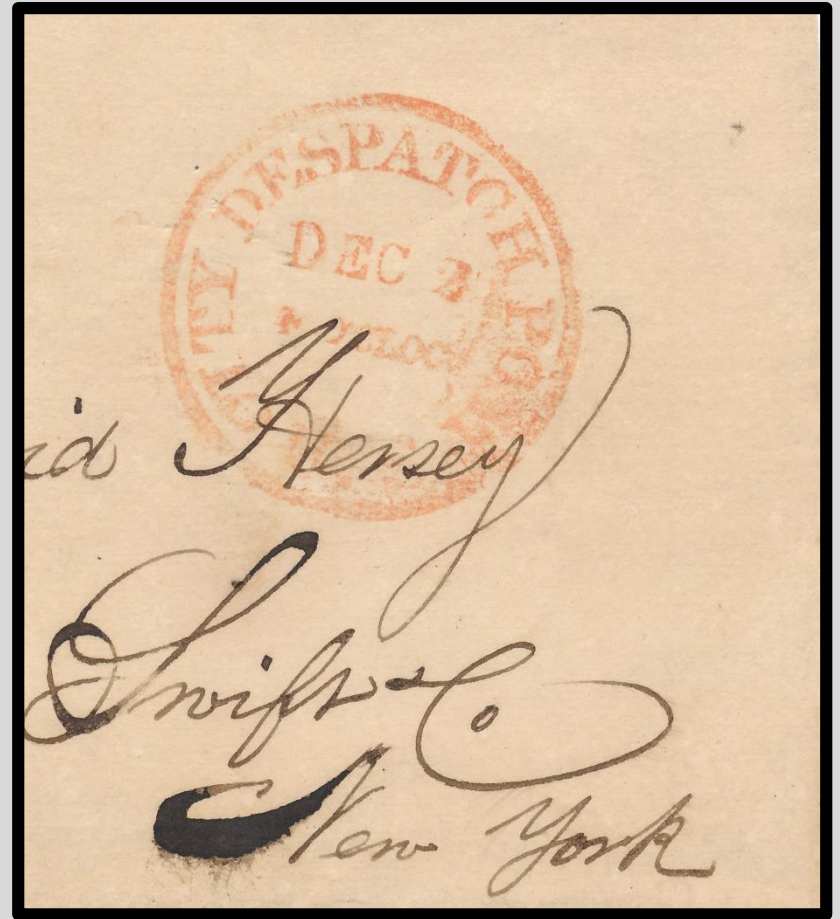 ITY DESPATCH PO
DEC 2
id Hersey
Swift & Co
New York